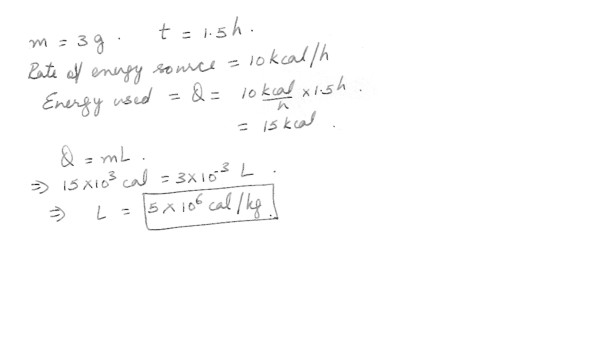 m = 3g. t = 1.5h.
Rate of energy source = 10kcal/h
Energy used = Q = 10 kcal/h × 1.5h.
= 15kcal.
Q = mL.
⇒ 15×10³ cal = 3×10⁻³ L.
⇒ L = 5×10⁶ cal/kg.